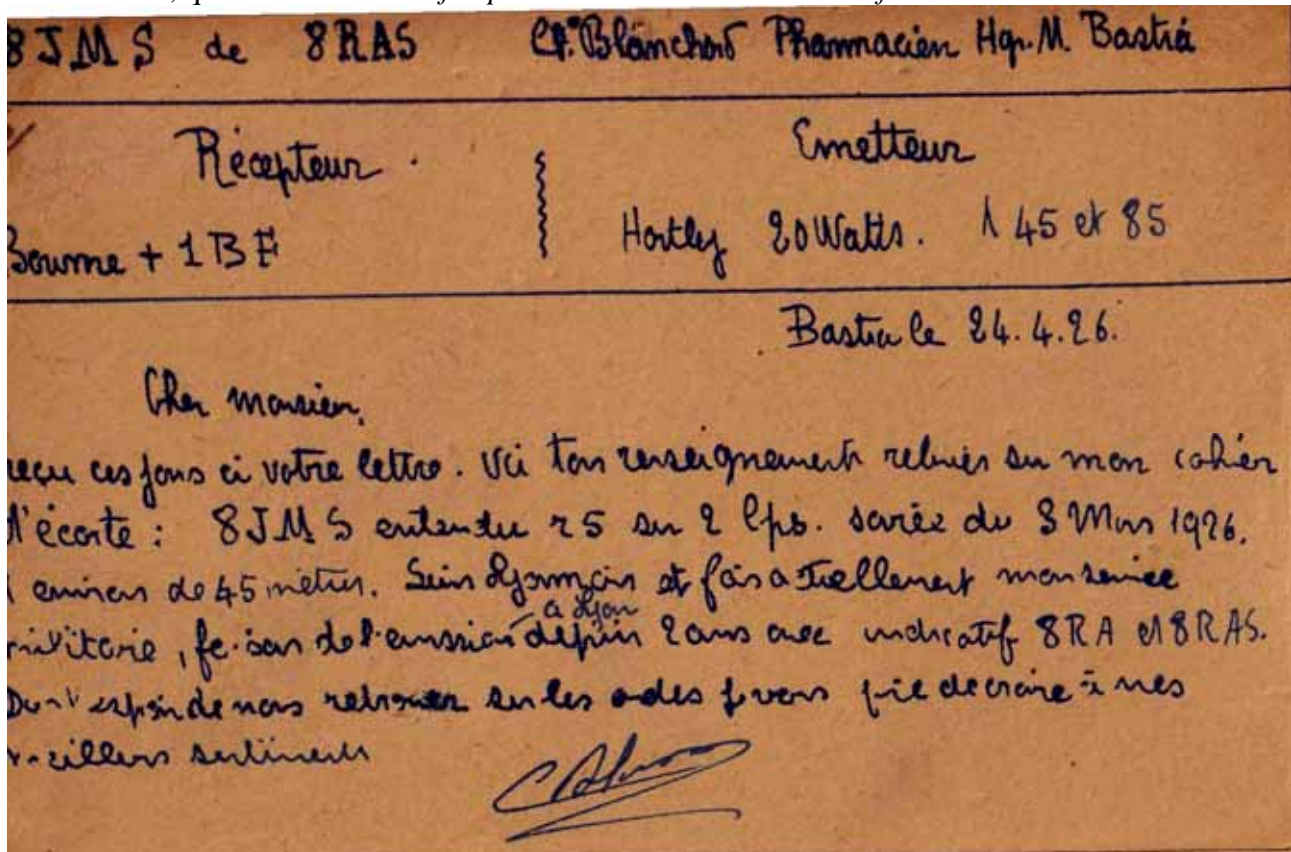 8JMS de 8RAS Ch. Blanchard Pharmacien Hop. M. Bastia
Récepteur
Emetteur
Bourne + 1 BF
Hartley 20 Watts. λ 45 et 85
Bastia le 24.4.26.
Cher monsieur,
reçu ces jours ci votre lettre. Voici ton renseignement relevés sur mon cahier
d'écoute : 8JMS entendu r5 sur 2 lps. soirée du 3 Mars 1926.
λ environ de 45 mètres. Suis Lyonnais et fais actuellement mon service
militaire, je fais de l'emission à Lyon depuis 2 ans avec indicatif 8RA et 8RAS.
Dans l'espoir de nous retrouver sur les ondes je vous prie de croire à mes
meilleurs sentiments